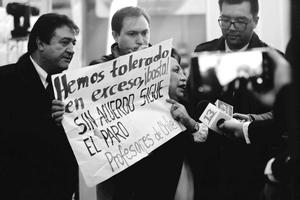 Hemos tolerado
en exceso, ¡basta!
SIN ACUERDO SIGUE
EL PARO
Profesores de Chile